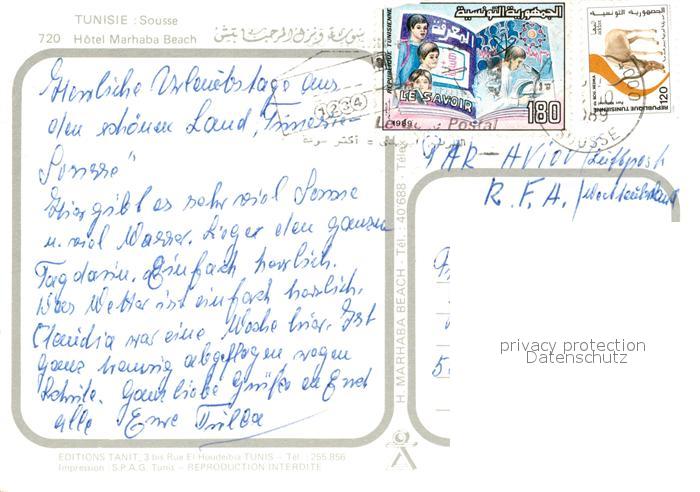 TUNISIE : Sousse
720 Hôtel Marhaba Beach
Herrliche Urlaubstage aus
den schönen Land, "Tunesien-
Sousse"
Hier gibt es sehr viel Sonne
u. viel Wasser. Liege den ganzen
Tag darin. Einfach herrlich.
Das Wetter ist einfach herrlich.
Claudia war eine Woche hier. Ist
ganz traurig abgeflogen wegen
Schule. Ganz liebe Grüße an Euch
alle Eure Hilda
EDITIONS TANIT, 3 bis Rue El Houdeibia TUNIS - Tél : 255.856
Impression : S.P.A.G. Tunis - REPRODUCTION INTERDITE
H. MARHABA BEACH - Tél. : 40 688 - Télex
الجمهورية التونسية
REPUBLIQUE TUNISIENNE
المعرفة
LE SAVOIR
1989
180
الجمهورية التونسية
REPUBLIQUE TUNISIENNE
120
1234
Code Postal
1989
SOUSSE
PAR-AVION/Luftpost
R.F.A./Westdeutschland
5
privacy protection
Datenschutz